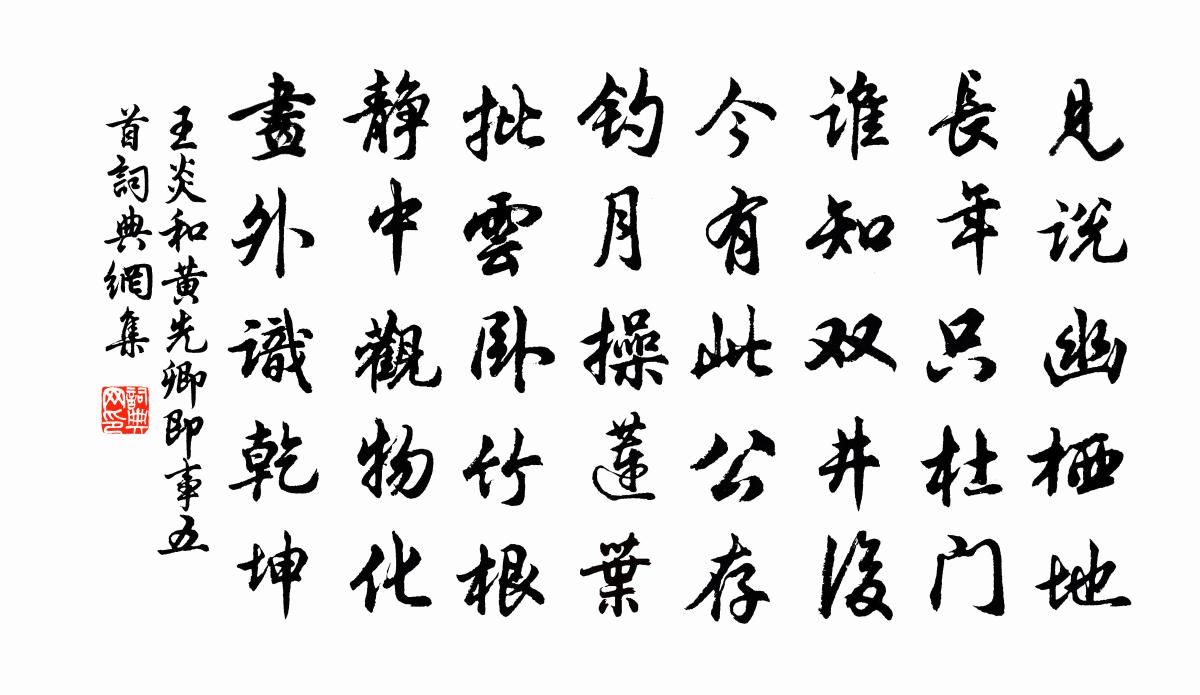 見説幽栖地
長年只杜门
谁知双井後
今有此公存
钓月操蓮葉
批雲卧竹根
静中觀物化
畫外識乾坤
王炎和黄先卿即事五
首詞典網集
詞典
网印